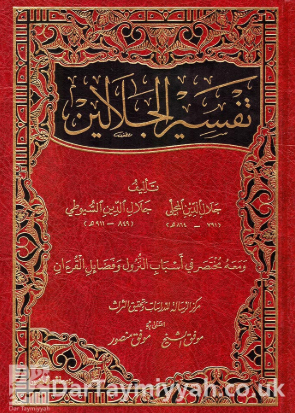 تفسير الجلالين
تأليف
جلال الدين المحلي جلال الدين السيوطي
(٧٩١ - ٨٦٤ هـ) (٨٤٩ - ٩١١ هـ)
ومعه مختصر في أسباب النزول وفضايل القرءان
مركز الرسالة للدراسات وتحقيق التراث
موفق منصور
Dar Taymiyyah
DarTaymiyyah.co.uk